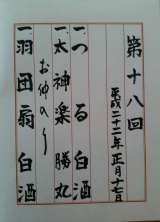 第十八回
平成二十二年正月十七日
一、つる 白酒
一、太神楽 勝丸
お仲入り
一、羽団扇 白酒